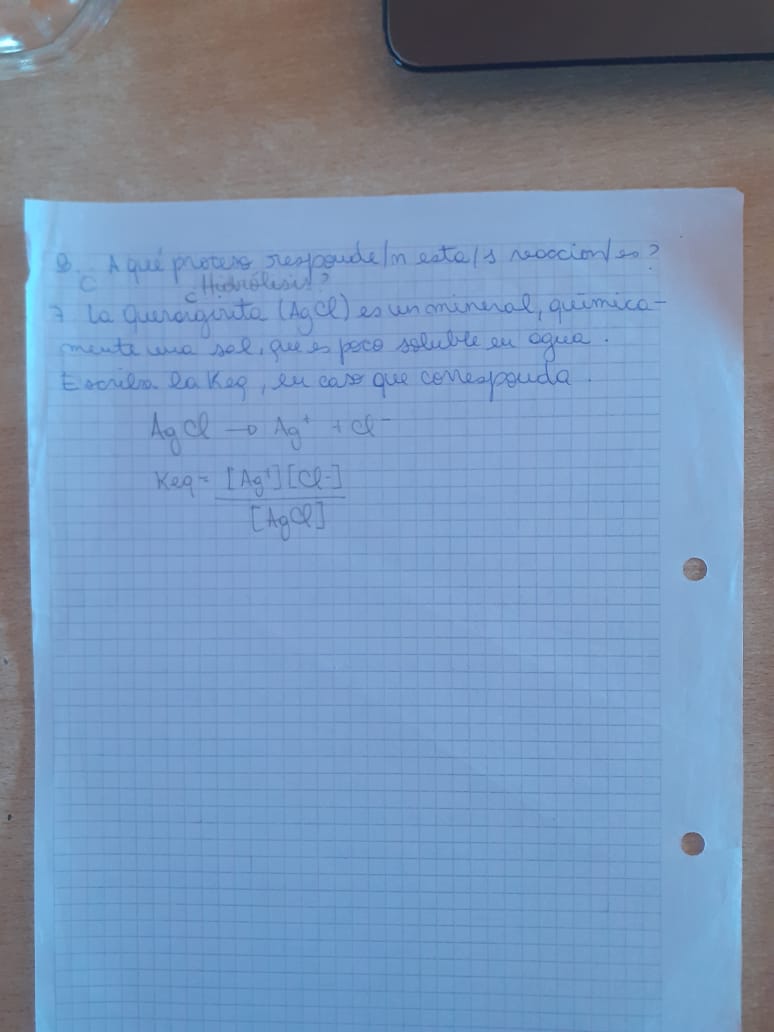 C. A qué proceso responde/n esta/s reaccion/es?
¿Hidrólisis?
7 La Querargirita (AgCl) es un mineral, química-
mente una sal, que es poco soluble en agua.
Escriba la Keq, en caso que corresponda.
AgCl → Ag⁺ + Cl⁻
Keq = [Ag⁺][Cl⁻]
[AgCl]